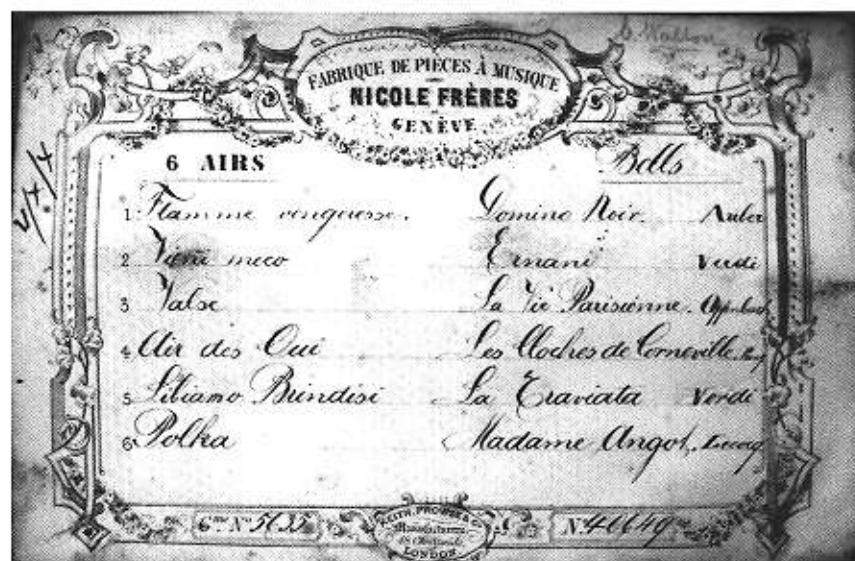 FABRIQUE DE PIECES À MUSIQUE
NICOLE FRÈRES
GENÈVE
6 AIRS Bells
1 Flamme vengeresse. Domino Noir. Auber
2 Vieni meco Ernani Verdi
3 Valse La Vie Parisienne. Offenbach
4 Air des Oui Les Cloches de Corneville.
5 Libiamo Brindisi La Traviata Verdi
6 Polka Madame Angot. Lecocq
KEITH, PROWSE & Co
Manufacturers
LONDON
Gme No 5635 No 40649